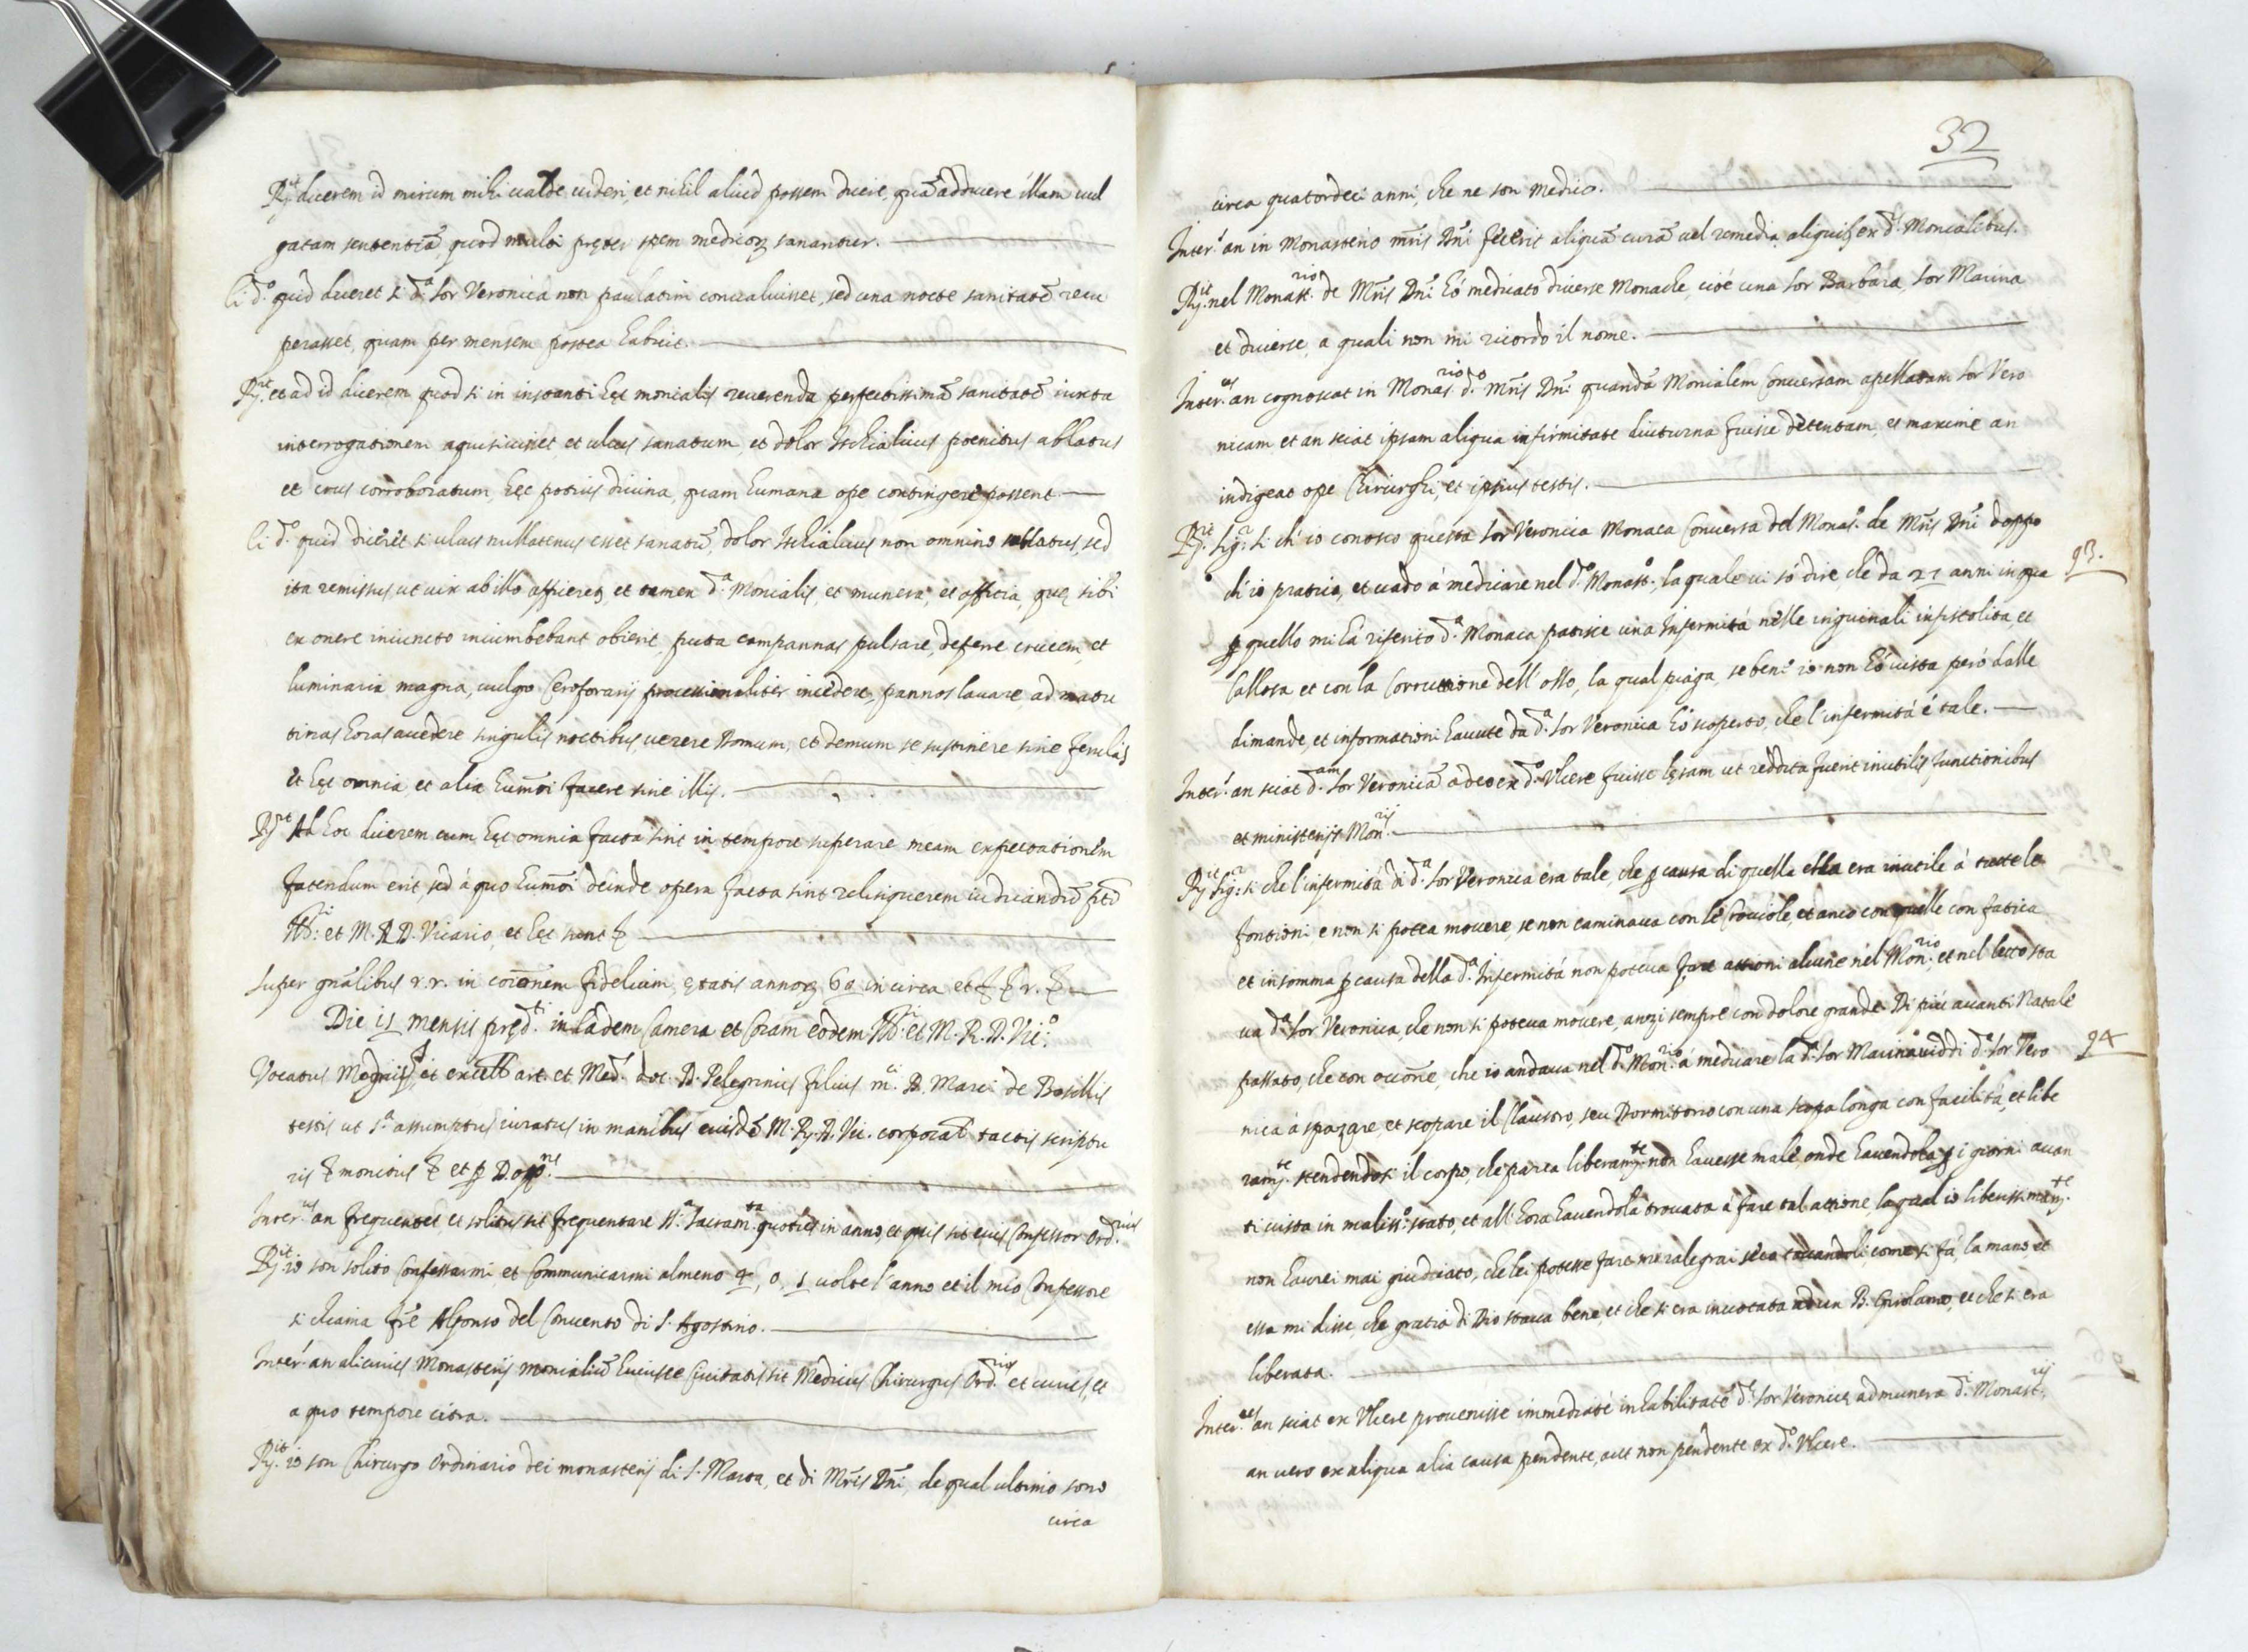 R.it dicerem id mirum mihi ualde uideri, et nihil aliud possem dicere, quã adducere illam uul
gatam sententiã, quod multi pręter spem medicoꝝ sanantur.
Ei d.o quid diceret si d.a Sor Veronica non paulatim conualuisset, sed una nocte sanitatẽ recu
perasset, quam per mensem postea habuit.
R.it et ad id dicerem quod si in instanti hęc monialis reuerenda perfectissimã sanitatẽ iuxta
interrogationem aquisiuisset, et ulcus sanatum, et dolor Ischialicus poenitus ablatus
et crus corroboratum, hęc potius diuina, quam humana ope contingere possent
Ei d.o quid diceret si ulcus nullatenus esset sanatũ, dolor Ischialicus non omnino sublatus, sed
ita remissus ut uix ab illo afficeretꝫ, et tamen d.a Monialis, et munera, et officia, quę sibi
ex onere iniuncto incumbebant obierit, puta campannas pulsare, deferre crucem, et
luminaria magna, uulgo Ceroforarij processionaliter incedere, pannos lauare, ad matu
tinas horas accedere singulis noctibus, uerere Domum, et demum se sustinere sine ferulis
et hęc omnia, et alia hum̃oi facere sine illis.
R.it Ad hoc dicerem cum hęc omnia facta sint in tempore superare meam expectationem
fatendum erit, sed à quo hum̃oi deinde opera facta sint relinquerem iudicandũ
Ill.i et M. R. D. Vicario, et hęc sunt &
super gñalibus r.r. in com̃onem fidelium, ętatis annoꝝ 60 in circa et & & r. &
Die 15 mensis pręd.ti in eadem Camera et Coram eodem Ill.ri et M. R. D. Vic.o
Vocatus Magnif. et excell. art. et Med. doc. D. Pelegrinus filius m.ci D. Marci de Bosellis
testis ut s.a assumptus iuratus in manibus eiusdẽ M. R. D. Vic. corporal. tactis scriptu
ris & monitus & et ꝑ D. opp.nes
Inter.us an frequentet, et solitus sit frequentare SS.a Sacram.ta quoties in anno, et quis sit eius Confessor Ord.rius
R.it io son solito Confessarmi, et Communicarmi almeno 4, o, 5 uolte l'anno et il mio Confessore
si chiama frẽ Alfonso del Conuento di S. Agostino.
Inter. an alicuius Monasterij monialiũ huiusce Ciuitatis sit Medicus Chirurgus Ord.rius et cuius, et
a quo tempore citra.
R.it io son Chirurgo Ordinario dei monasterij di S. Marta, et di Mr̃is Dñi, de qual ultimo sono
circa
32
circa quatordeci anni, che ne son medico.
Inter. an in Monasterio mr̃is Dñi fecerit aliquã curã uel remedia aliquibꝫ ex d. Monialibus.
R.it nel Monast.rio de Mr̃is Dñi hò medicato diuerse Monache, cioè una Sor Barbara, Sor Marina
et diuerse, a quali non mi ricordo il nome.
Inter.us an cognoscat in Monas.rio d.o Mr̃is Dñi quandã Monialem Conuersam apellatam Sor Vero
nicam, et an sciat ipsam aliqua infirmitate diuturna fuisse detentam, et maxime an
indigeat ope Chirurghi, et ipsius testis.
R.it Sig.r si ch'io conosco questa Sor Veronica Monaca Conuersa del Monas.o de Mr̃is Dñi doppo
ch'io pratico, et uado à medicare nel d.o Monast.o, la quale ui sò dire, che da 21 anni in qua
93.
ꝑ quello mi hà riferito d.a Monaca patisce una Infermità nelle inguinali infistolita et
Callosa et con la Corruttione dell'osso, la qual piaga, se ben io non hò uista però dalle
dimande, et informationi hauute da d.a Sor Veronica hò scoperto, che l'infermità è tale.
Inter. an sciat d.am Sor Veronicã adeo ex d.o Vlcere fuisse lęsam ut reddita fuerit inutilis functionibus
et ministerijs Mon.rij
R.it Sig.r si che l'infermità di d.a Sor Veronica era tale, che ꝑ causa di quella ella era inutile à tutte le
fontioni, e non si potea mouere, se non caminaua con le Crociole, et anco con quelle con fatica
et in somma ꝑ causa della d.a Infermità non poteua fare attioni alcune nel Mon.rio, et nel letto sta
ua d.a Sor Veronica, che non si poteua mouere, anzi sempre con dolore grande. Di più auanti Natale
passato, che con occõne, che io andaua nel d.o Mon.rio à medicare la d.a Sor Marina uiddi d.a Sor Vero
94
nica à spazzare, et scopare il Claustro, seu Dormitorio con una scopa longa con facilità, et libe
ram.te stendendosi il corpo, che parea liberam.te non hauesse male, onde hauendola ꝑ i giorni auan
ti uista in maliss.o stato, et all'hora hauendola trouata à fare tal attione, la qual io liberissimam.te
non haurei mai giudicato, che lei potesse fare mi ralegrai seco toccandoli, come si fà, la mano, et
essa mi disse, che gratia di Dio staua bene, et che si era inuotata ad un B. Girolamo, et che si era
liberata.
Inter.us an sciat ex Vlcere prouenisse immediatè inhabilitatẽ d. Sor Veronicę ad munera d.i Monast.rij
an uero ex aliqua alia causa pendente, aut non pendente ex d.o Vlcere.